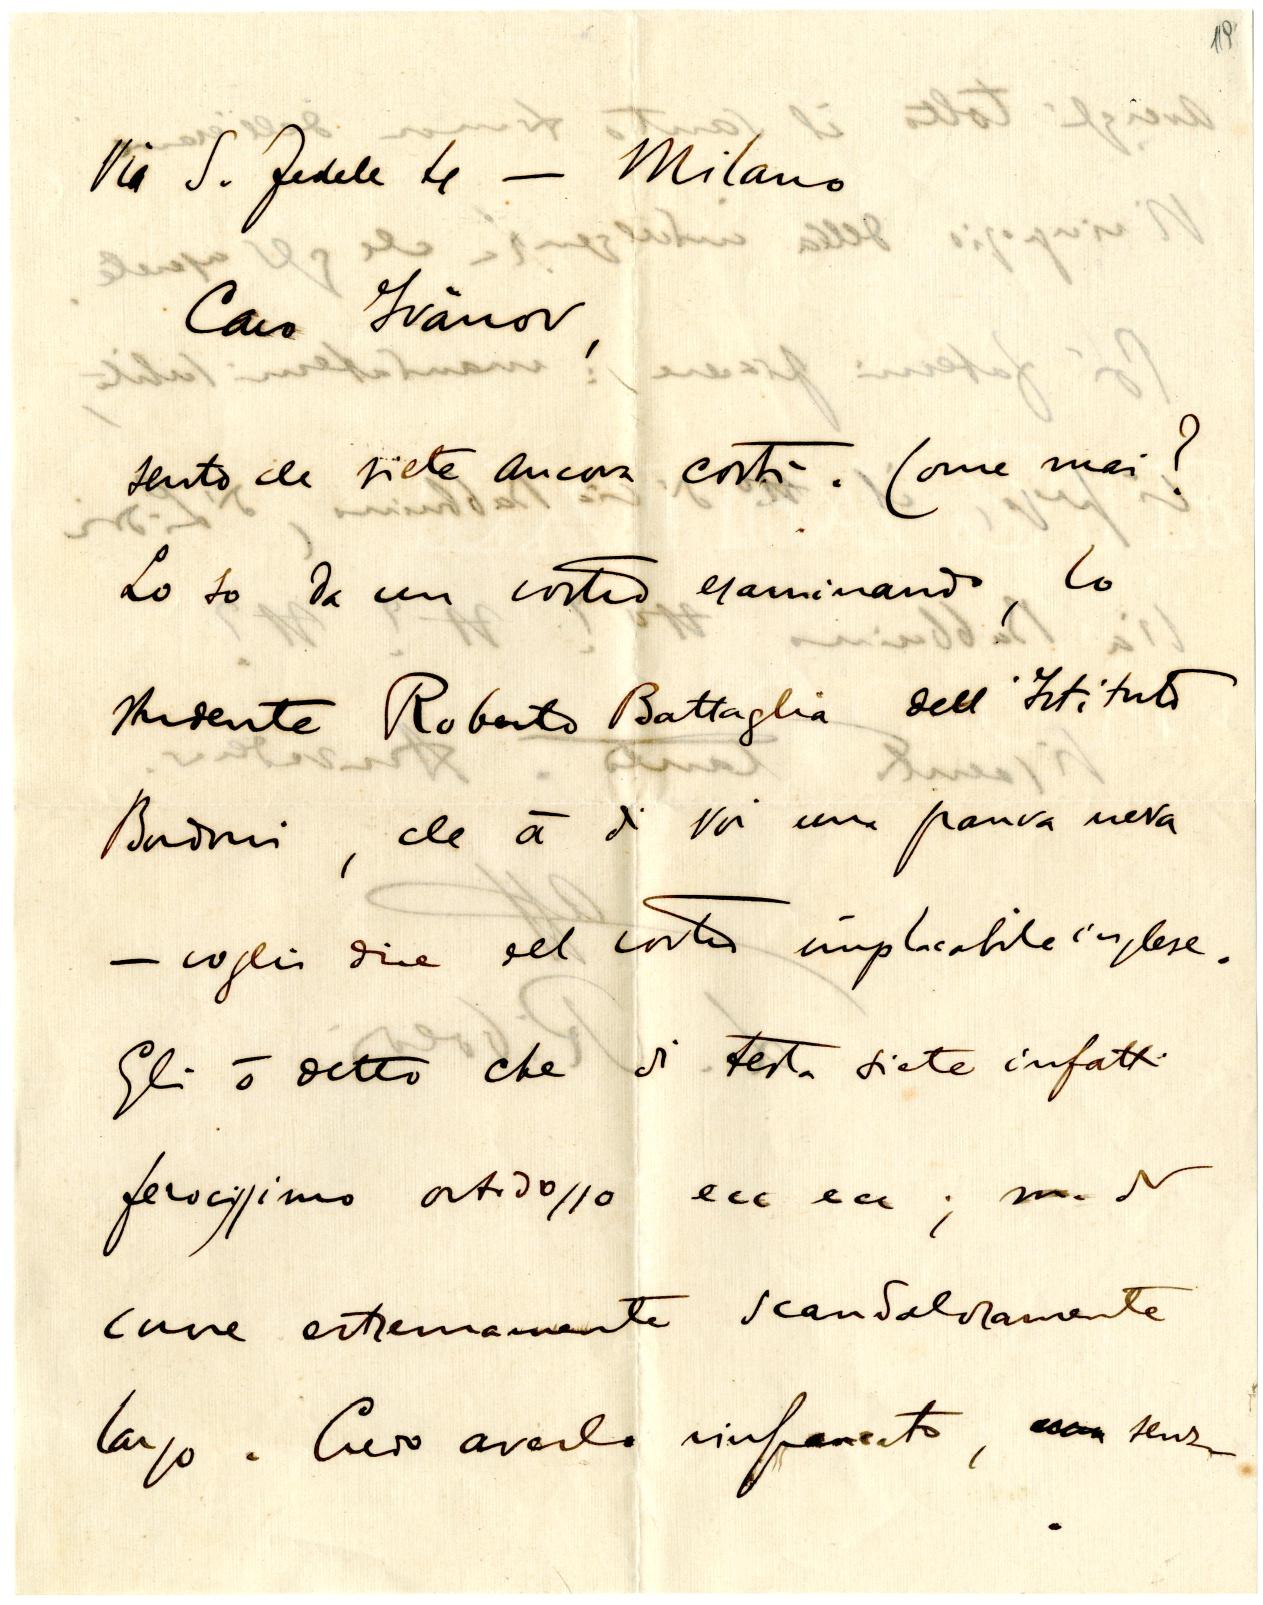 19
Via S. Fedele 4 — Milano
Caro Ivànov,
sento che siete ancora costì. Come mai?
Lo so da un vostro esaminando, lo
studente Roberto Battaglia dell'Istituto
Bodoni, che à di voi una paura nera
— voglio dire del vostro implacabile inglese.
Gli ò detto che di testa siete infatti
ferocissimo ortodosso ecc ecc; ma di
cuore estremamente scandalosamente
largo. Credo averlo rinfrancato, senza